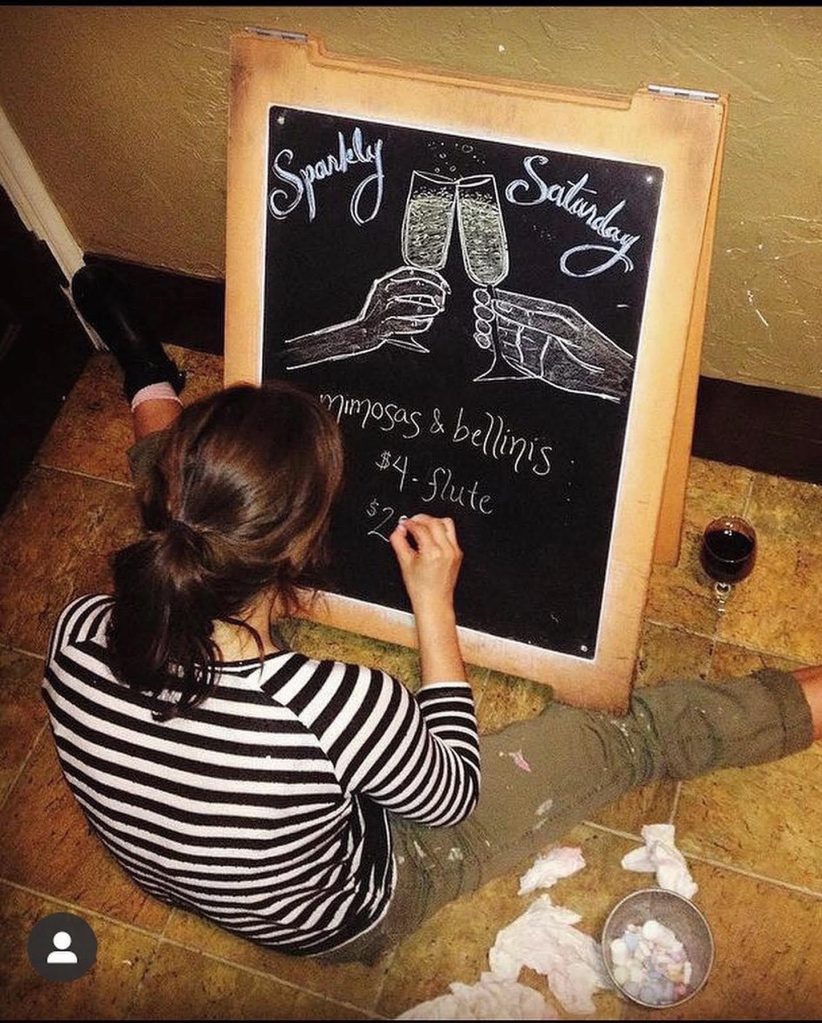 Sparkly Saturday
mimosas & bellinis
$4 - flute
$2